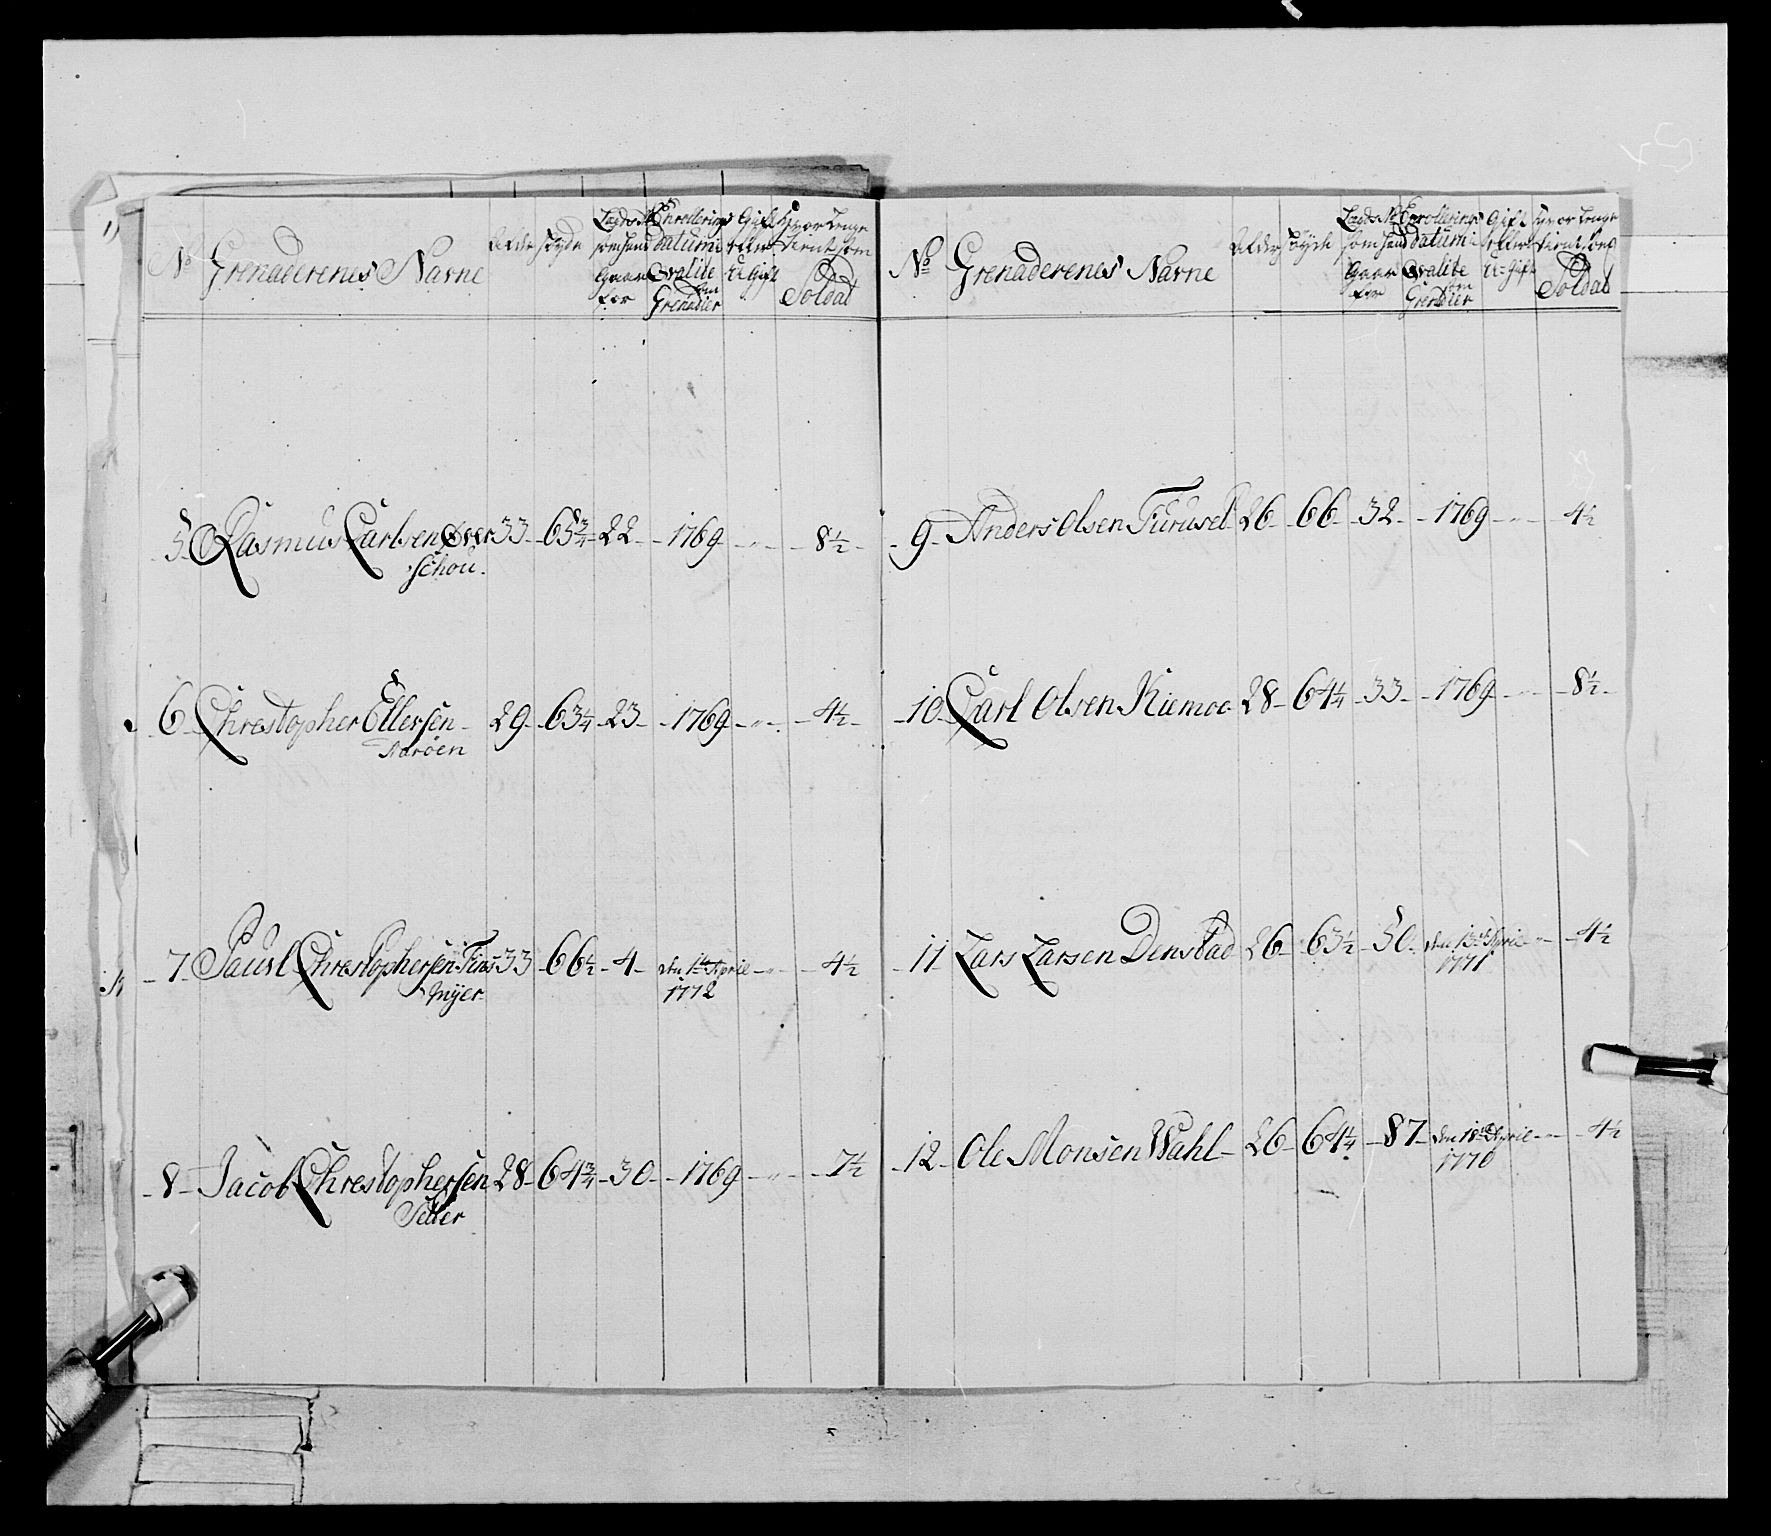 No Grenaderenes Navne Alder Høyde Lægds No som hand Gaar for Enrollerings datum i Qvalite som Grenadier Gift eller U-Gift Hvor Lenge tient som Soldat
5 Rasmus Carlsen Over 33 65¾ 22 1769 „ 8½
schou
6 Chrestopher Ellersen 29 63¼ 23 1769 „ 4½
Aaroen
7 Pauvl Chrestophersen Fins 33 66½ 4 den 1te April „ 4½
Myer 1772
8 Jacob Chrestophersen 28 64¾ 30 1769 „ 7½
Setter
No Grenaderenes Navne Alder Høyde Lægds No som hand Gaar for Enrollerings datum i Qvalite som Grenadier Gift eller U-Gift Hvor Lenge tient som Soldat
9 Anders Olsen Furuset 26 66 32 1769 „ 4½
10 Carl Olsen Kiemoe 28 64¼ 33 1769 „ 8½
11 Lars Larsen Denstad 26 63½ 50 den 13de April „ 4½
1771
12 Ole Monsen Wahl 26 64¼ 87 den 18de April „ 4½
1770